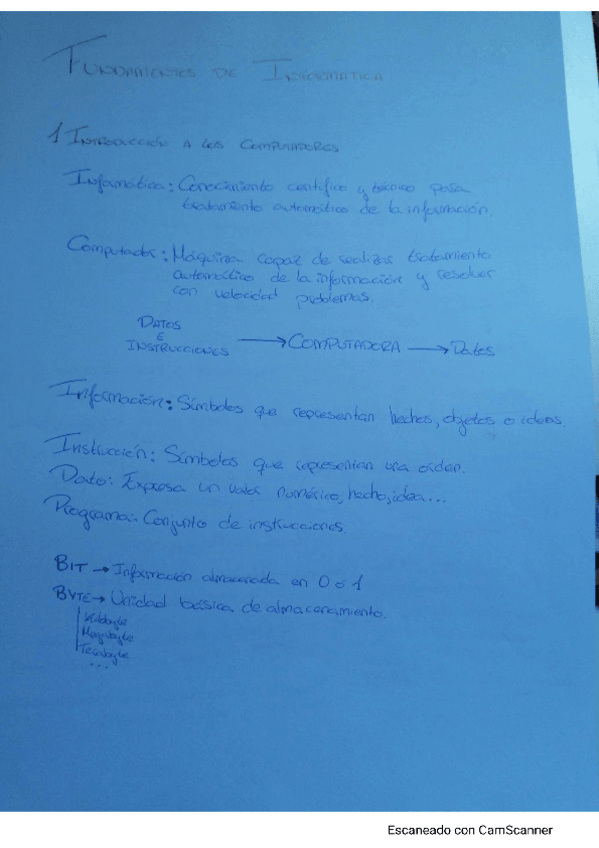 FUNDAMENTOS DE INFORMÁTICA
1 INTRODUCCIÓN A LOS COMPUTADORES
Informática: Conocimiento científico y técnico para
tratamiento automático de la información.
Computador: Máquina capaz de realizar tratamiento
automático de la información y resolver
con velocidad problemas.
DATOS
E
INSTRUCCIONES → COMPUTADORA → Datos
Información: Símbolos que representan hechos, objetos o ideas
Instrucción: Símbolos que representan una orden.
Dato: Expresa un valor numérico, hecho, idea...
Programa: Conjunto de instrucciones.
BIT → Información almacenada en 0 ó 1
BYTE → Unidad básica de almacenamiento.
Kilobyte
Megabyte
Terabyte
...
Escaneado con CamScanner